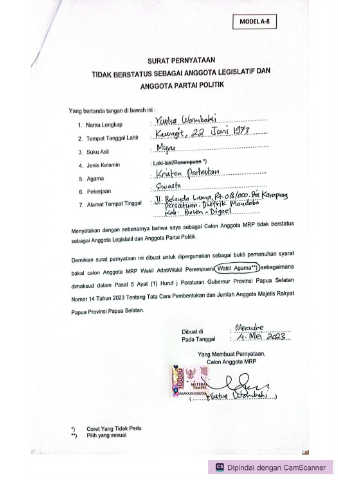 MODEL A-8
SURAT PERNYATAAN
TIDAK BERSTATUS SEBAGAI ANGGOTA LEGISLATIF DAN
ANGGOTA PARTAI POLITIK
Yang bertanda tangan di bawah ini :
1. Nama Lengkap :
2. Tempat Tanggal Lahir : 22 Juni 1973
3. Suku Asli :
4. Jenis Kelamin : Laki-laki/Perempuan *)
5. Agama : Kristen Protestan
6. Pekerjaan : Swasta
7. Alamat Tempat Tinggal : Jl.
Kab. Boven - Digoel
Menyatakan dengan sebenarnya bahwa saya sebagai Calon Anggota MRP tidak berstatus
sebagai Anggota Legislatif dan Anggota Partai Politik.
Demikian surat pernyataan ini dibuat untuk dipergunakan sebagai bukti pemenuhan syarat
bakal calon Anggota MRP Wakil Adat/Wakil Perempuan/Wakil Agama**) sebagaimana
dimaksud dalam Pasal 5 Ayat (1) Huruf j Peraturan Gubernur Provinsi Papua Selatan
Nomor 14 Tahun 2023 Tentang Tata Cara Pembentukan dan Jumlah Anggota Majelis Rakyat
Papua Provinsi Papua Selatan.
Dibuat di : Merauke
Pada Tanggal : 4 Mei 2023
Yang Membuat Pernyataan,
Calon Anggota MRP
METERAI
TEMPEL
*) Coret Yang Tidak Perlu
**) Pilih yang sesuai
CS Dipindai dengan CamScanner